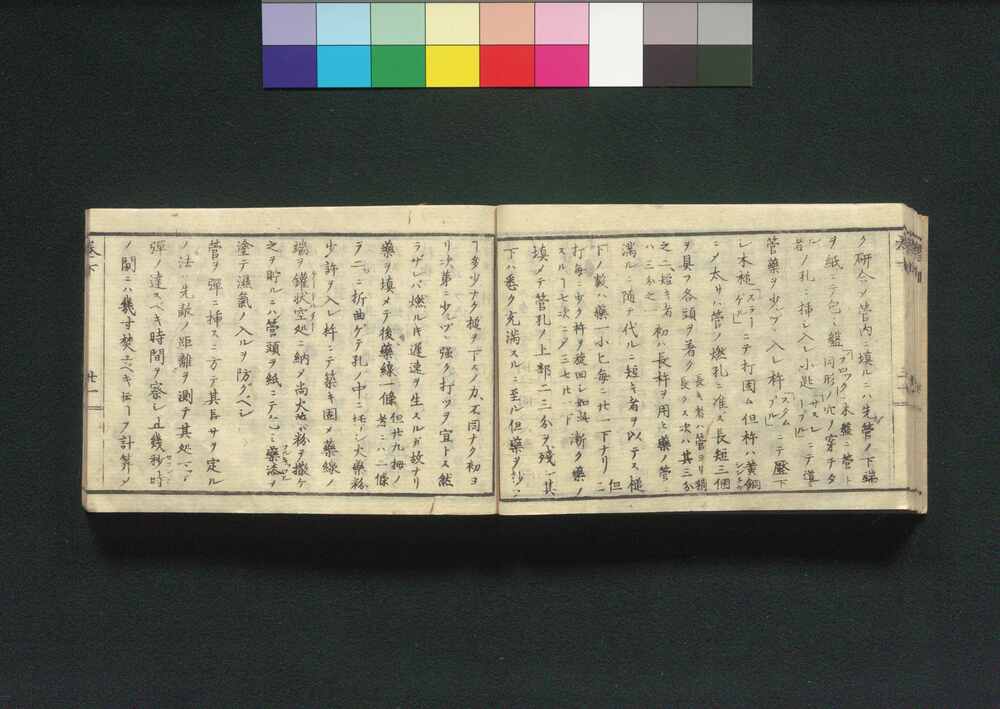 ク研合シ管内ニ填ルニハ先管ノ下端
ヲ紙ニテ包ミ盤「ブロック」木盤ニ管ト同形ノ穴ヲ穿チタ
者ノ孔ニ挿シ入レ小匙ニテ導
管藥ヲ少シヅヽ入レ杵ニテ壓下
レ木槌ニテ打固ム但杵ハ黄銅
ニメ太サハ管ノ燃孔ニ准ス長短三個
ヲ具ヲ各頭ヲ著ク長キ者ハ管ヨリ稍長クス次ハ其三分
之二短キ者ハ三分之一初ハ長杵ヲ用ヒ藥ノ管ニ
滿ルニ随テ代ルニ短キ者ヲ以テス槌
下ノ數ハ藥一小匕毎ニ廿一下ナリ但二
打毎ニ少ク杵ヲ旋回シ如此スルヿ七次ニタ三七廿一下漸ク藥ノ
填メテ管孔ノ上部二三分ヲ残シ其
下ハ悉ク充滿スルニ至ル但藥ヲ少シ
ヿ多少ナク槌ヲ下スノ力不同ナク初ヨ
リ次第ニ少シヅヽ強ク打ツヲ宜トス然
ラザレバ燃ルニ遅速ヲ生スルガ故ナリ
藥ヲ填メテ後藥線一條但廿九拇ノ者ニハ二條
ヲ二ニ折曲ゲテ孔ノ中ニ火藥粉
少許ヲ入レ杵ニテ築キ固メ藥線ノ
端ヲ鑵状空処ニ納メ尚火藥粉ヲ撒ク
之ヲ貯ルニハ管頭ヲ紙ニテ包ミ藥漆ヲ
塗テ濕氣ノ入ルヲ防グベシ
管ヲ弾ニ挿スニ方テ其長サヲ定ル
ノ法ハ先敵ノ距離ヲ測テ其処マデ
弾ノ達スベキ時間ヲ察シ此幾秒時
ノ間ニハ幾寸焚ユベキヤヲ計算メ
巻下
廿一